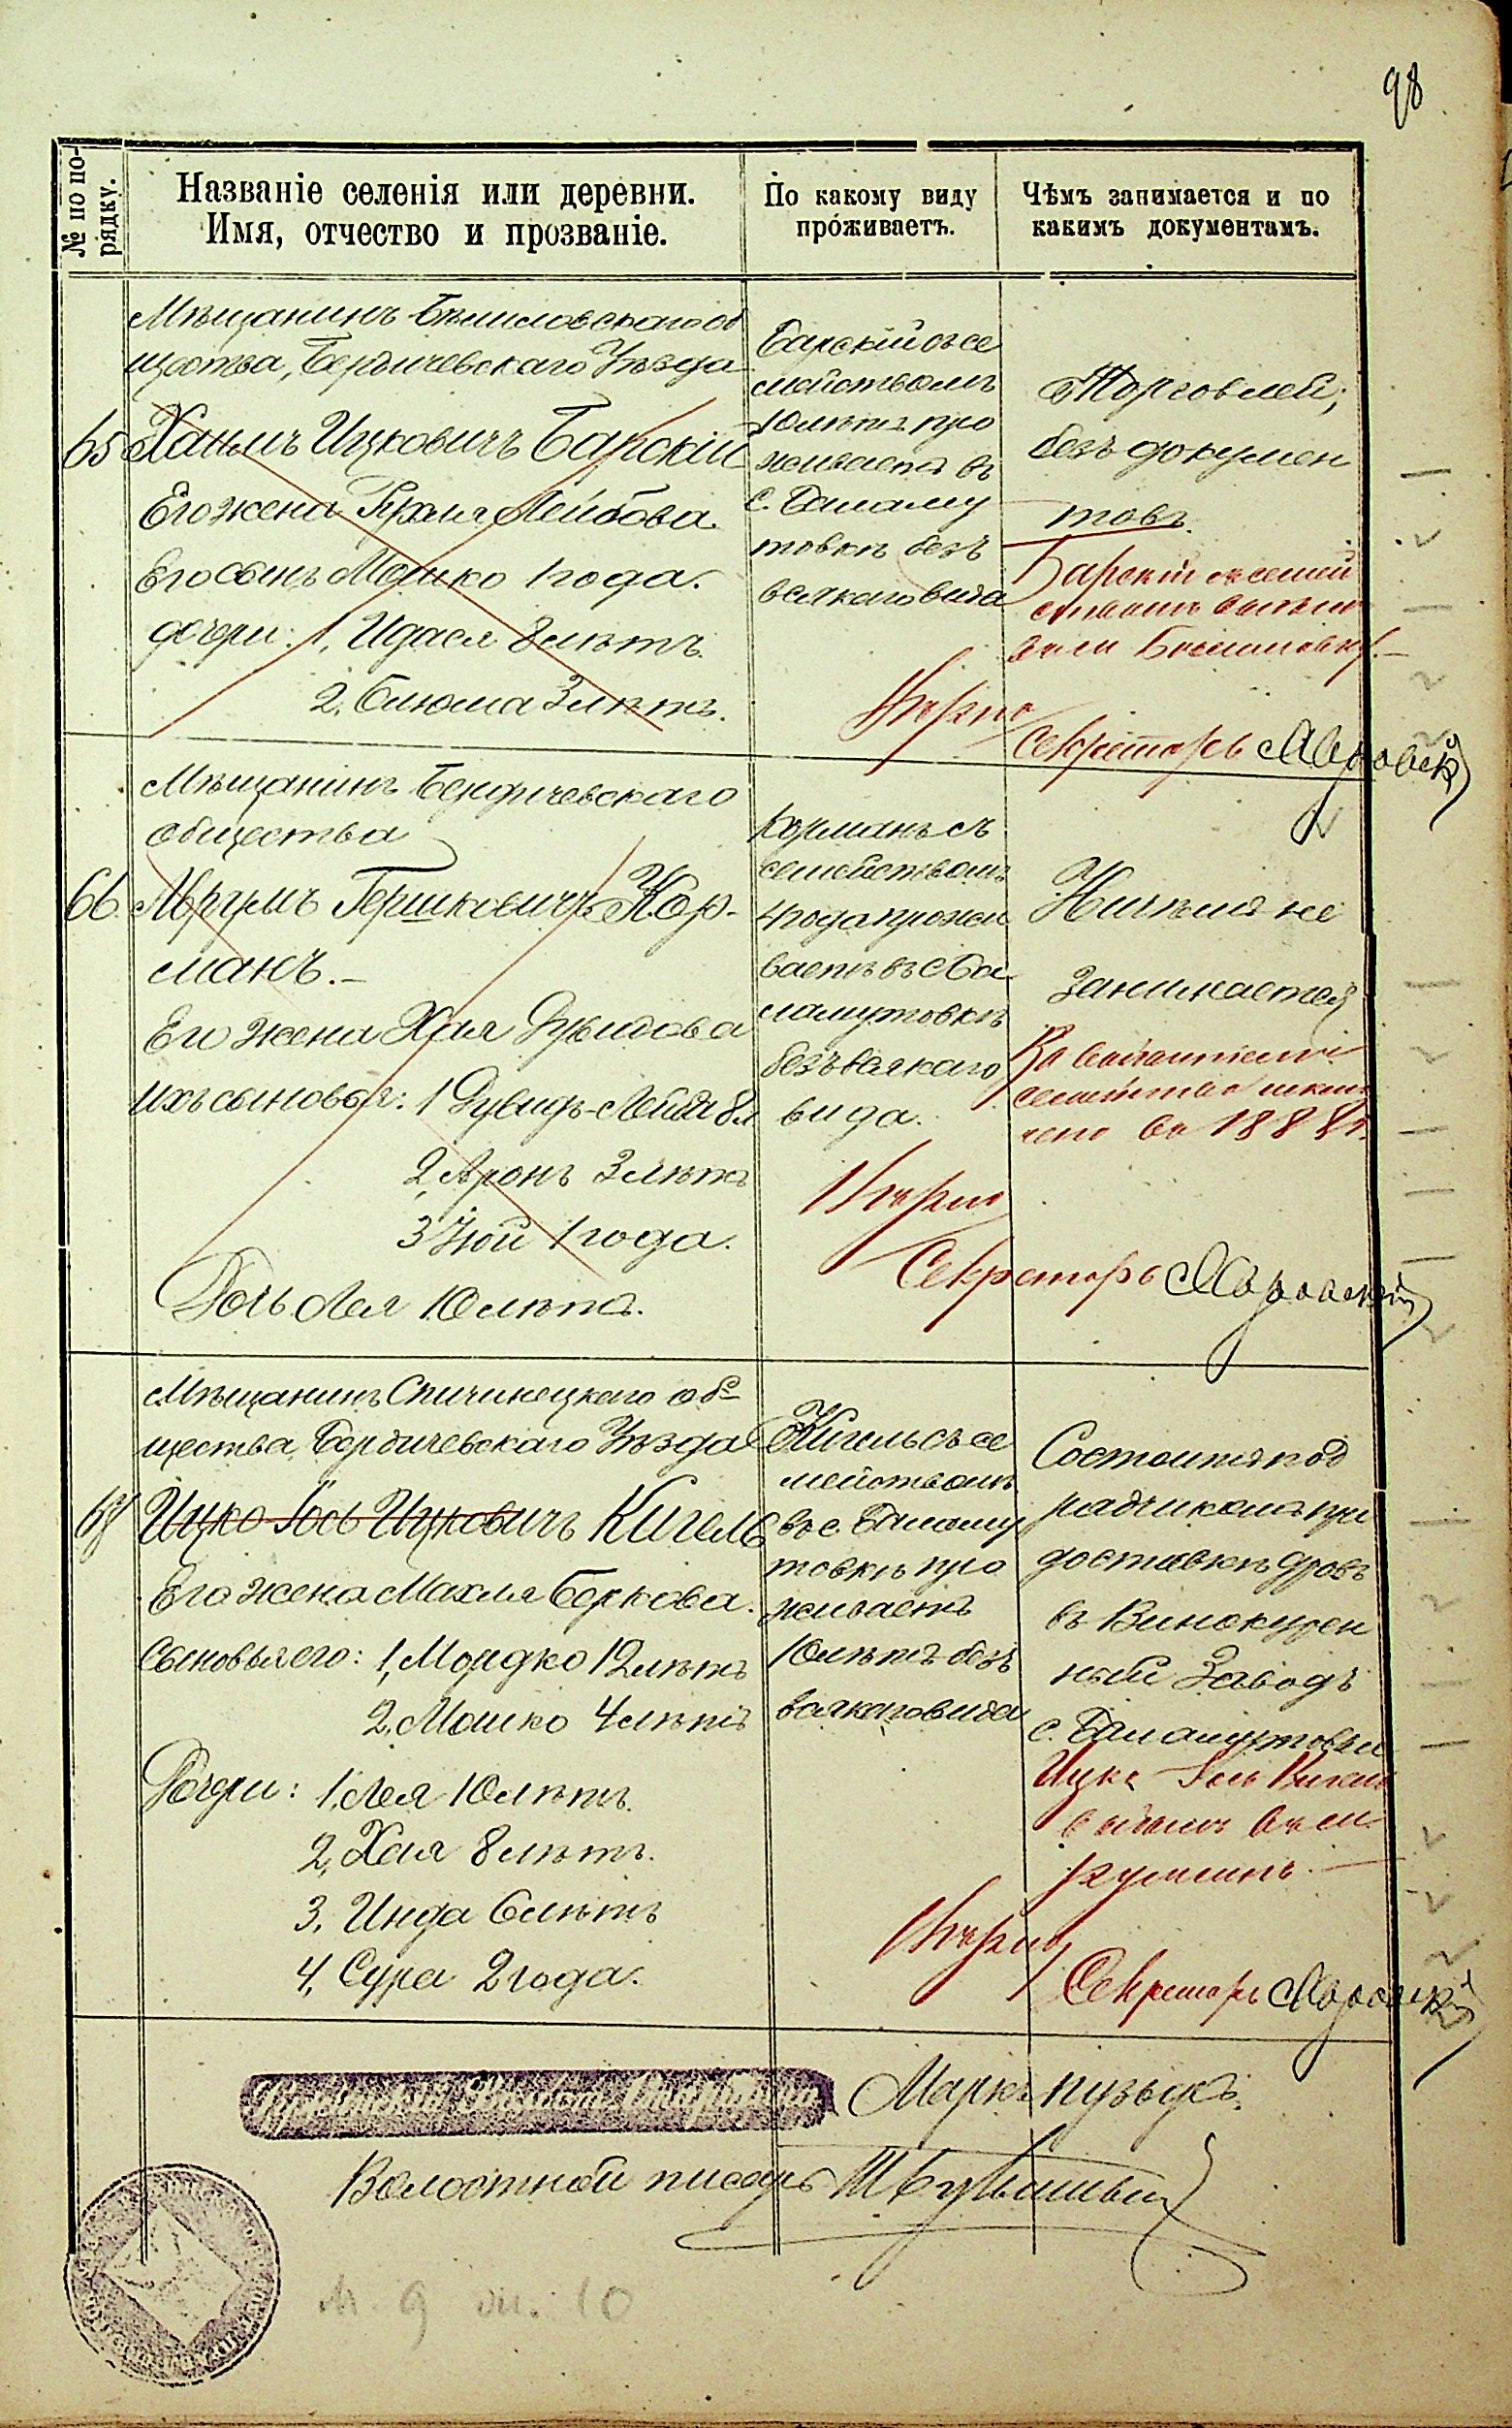 98
№ по по-
рядку.
Названіе селенія или деревни.
Имя, отчество и прозваніе.
По какому виду
проживаетъ.
Чѣмъ занимается и по
какимъ документамъ.
Мѣщанинъ Бѣлиловскаго об
щества, Бердичевскаго Уѣзда
65 Хаимъ Ицковичъ Барскій
Его жена Лейбова
Его сынъ Мошко 1 года.
дочери: 1, Идася 8 лѣтъ.
2, Блюма 3 лѣтъ.
Барскій съ се
мействомъ
10 лѣтъ про
живаетъ въ
с. Баламу
товкѣ безъ
всякаго вида
Торговлей,
безъ докумен
товъ.
Барскій съ семей
ствомъ
Вѣрно
Секретарь
Мѣщанинъ Бердичевскаго
общества
66. Аврумъ Гершковичъ Кор-
манъ.-
Его жена Хая Дувидова
Ихъ сыновья: 1 Дувидъ-Лейба 8 л
2, Аронъ 3 лѣтъ
3 1 года.
Дочь Лея 10 лѣтъ.
Корманъ съ
семействомъ
4 года прожи
ваетъ въ с. Ба
ламутовкѣ
безъ всякаго
вида.
Ничемъ не
занимается
семейство
въ 1888 г.
Вѣрно
Секретарь
Мѣщанинъ Спичинецкаго об-
щества, Бердичевскаго Уѣзда
67 Ицко-Іось Ицковичъ Кигель
Его жена Махля Беркова.
Сыновья его: 1, Мордко 12 лѣтъ
2, Мошко 4 лѣтъ
Дочери: 1, Лея 10 лѣтъ.
2, Хая 8 лѣтъ.
3, Инда 6 лѣтъ
4, Сура 2 года.
Кигель съ се
мействомъ
въ с. Баламу
товкѣ про
живаетъ
10 лѣтъ безъ
всякаго вида
Состоитъ под
рядчикомъ при
доставкѣ дровъ
въ Винокурен
ный Заводъ
с. Баламутовки
Ицко Іось Кигель
Вѣрно
Секретарь
Волостной Старшина Маркъ
Волостной писарь